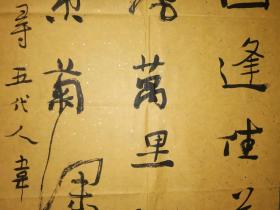 逢佳
萬里
菊
尋五代人韋